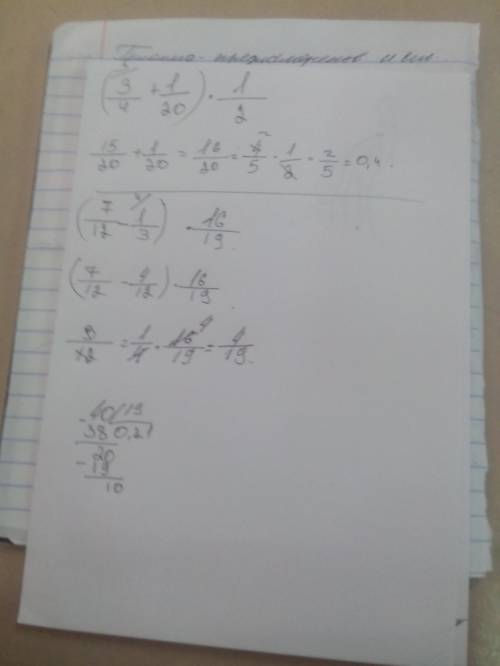 (3/4 + 1/20) · 1/2
15/20 + 1/20 = 16/20 = 4/5 · 1/2 = 2/5 = 0,4.
(7/12 - 1/3) · 16/19
(7/12 - 4/12) · 16/19
3/12 = 1/4 · 16/19 = 4/19.
40 | 19
38 0,21
20
- 19
10